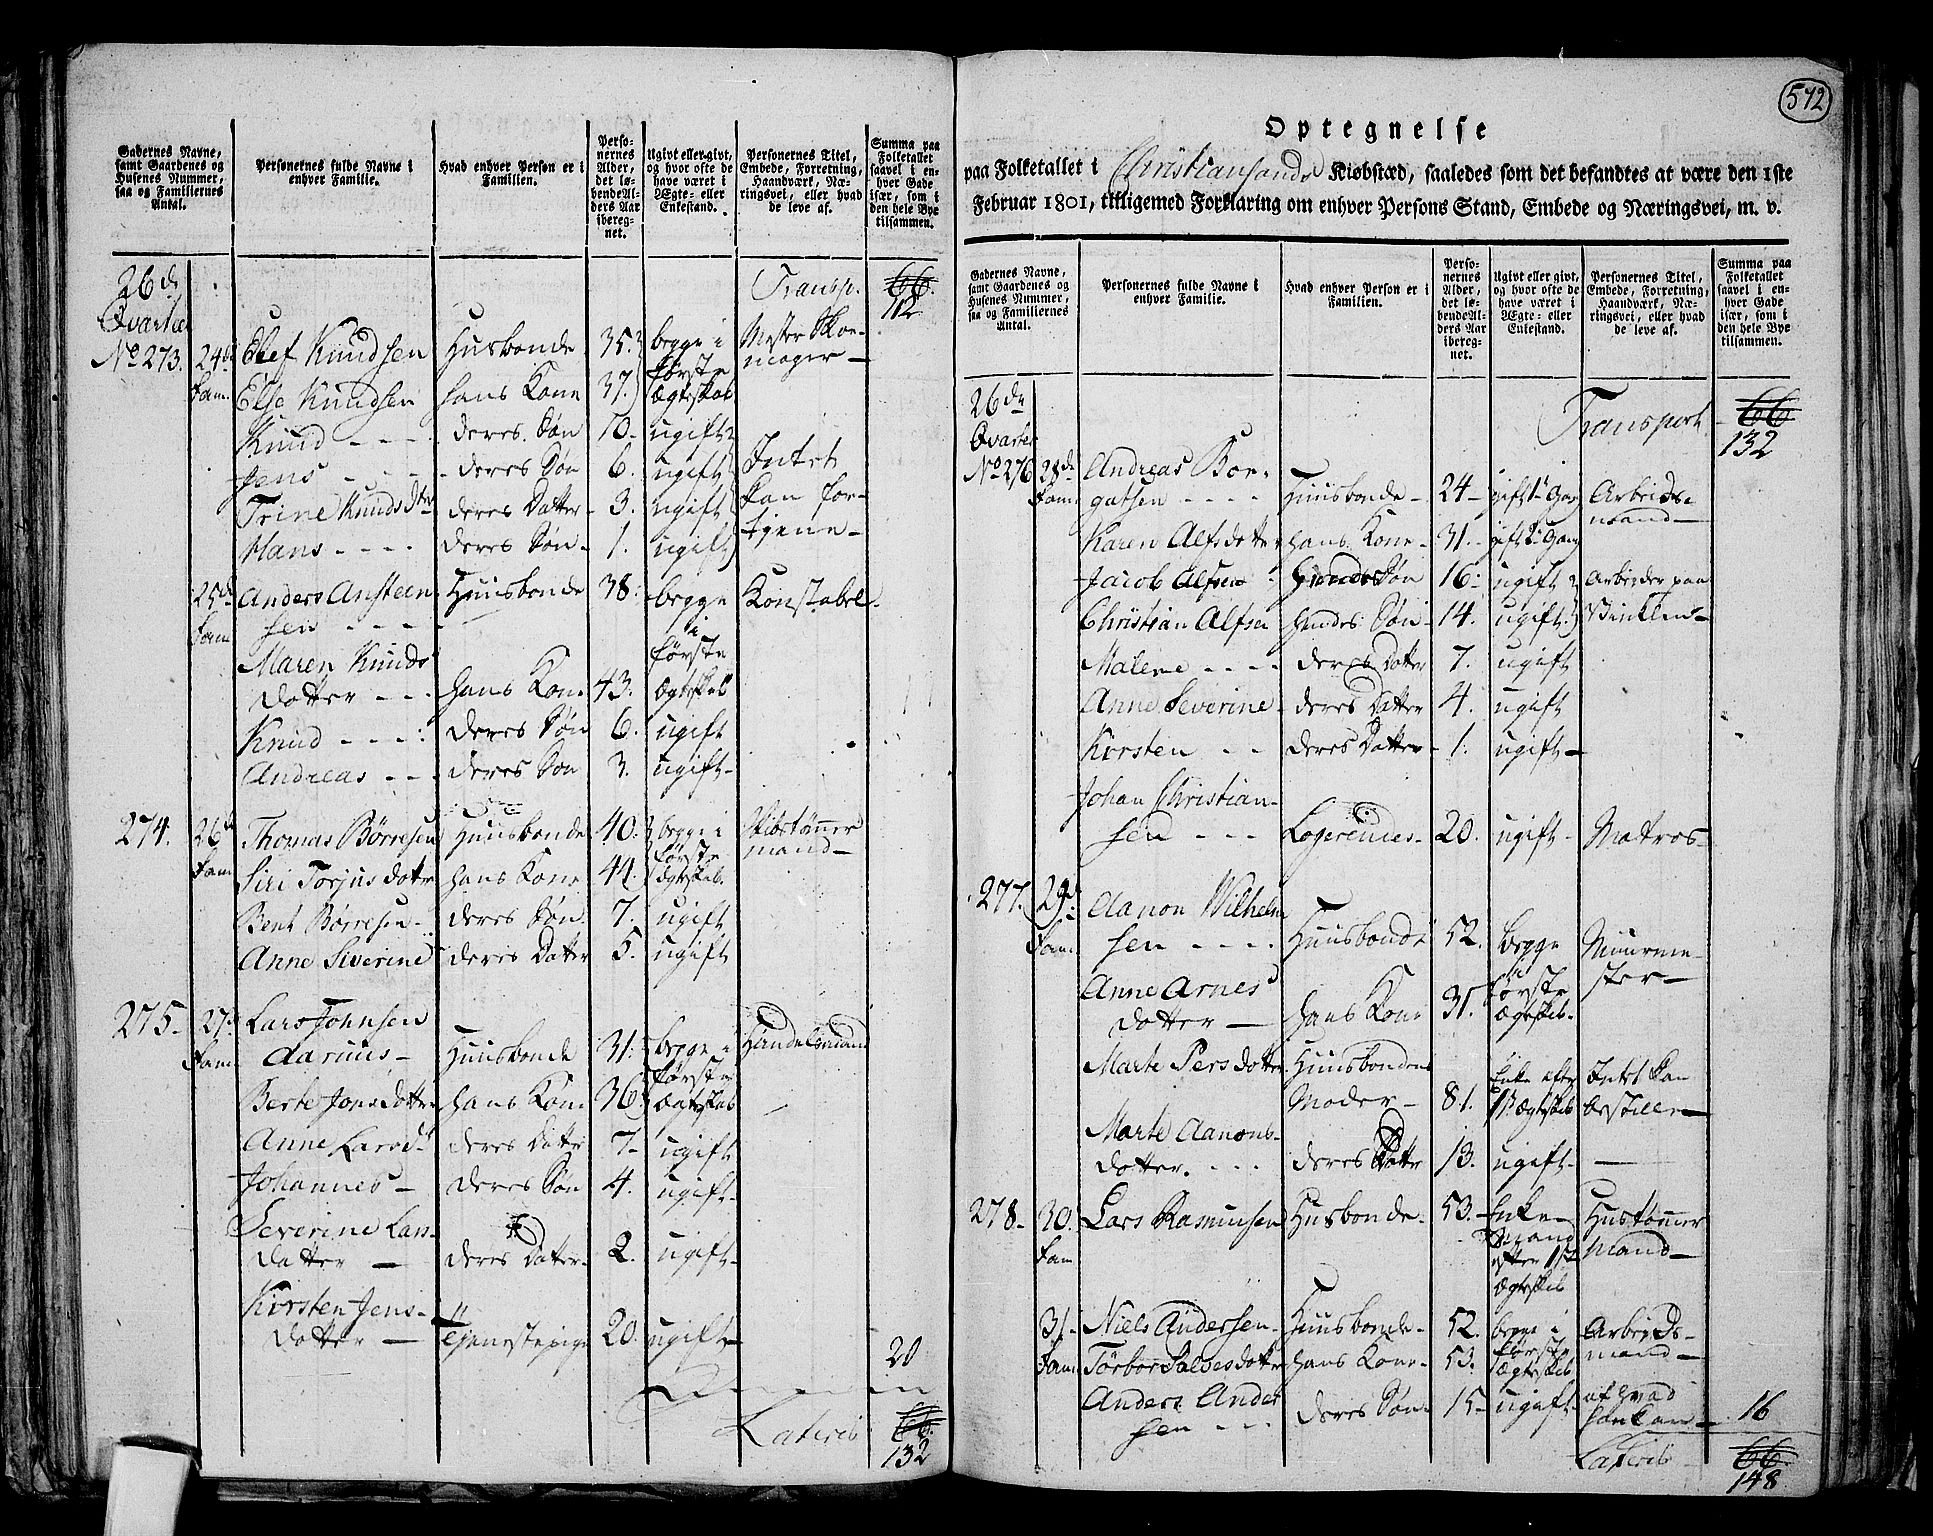 Gadernes Navne,
samt Gaardenes og
Husenes Nummer,
saa og Familiernes
Antal.
Personernes fulde Navne i
enhver Familie.
Hvad enhver Person er i
Familien.
Perso-
nernes
Alder,
det lø-
bende Al-
ders Aar
ibereg-
net.
Ugivt eller givt,
og hvor ofte de
have været i
Ægte- eller
Enkestand.
Personernes Titel,
Embede, Forretning,
Haandværk, Næ-
ringsvei, eller hvad
de leve af.
Summa paa
Folketallet
saavel i en-
hver Gade
især, som i
den hele Bye
tilsammen.
26de Transp. 66.
Qvarteer 112
No 273. 24de Elef Knudsen Husbonde 35. begge i Mester Skoe-
Fam. Else Knudsen hans Kone 37. første Ægteskab mager
Knud deres Søn 10. ugift Intet
Jens deres Søn 6. ugift kan for-
Trine Knudsdtr deres Datter 3. ugift tjene
Hans deres Søn 1. ugift
25de Anders Ansteen- Huusbonde 38. begge Constabel
Fam. sen i
Maren Knuds første
dotter hans Kone 43. Ægteskab
Knud deres Søn 6. ugift
Andreas deres Søn 3. ugift
274. 26de Thomas Børresen Huusbonde 40. begge i Skibstømmer
Fam. Siri Torjusdotter hans Kone 44. første Ægteskab. mand
Bent Børresen deres Søn 7. ugift
Anne Siverine deres Datter 5. ugift
275. 27de Lars Johnsen
Fam. Aarnus Huusbonde 31. begge i Handelsmand
Berte Jonsdotter hans Kone 36. første Ægteskab
Anne Larsd. deres Datter 7. ugift
Johannes deres Søn 4. ugift
Severine Lars-
datter deres Datter 2. ugift
Kirsten Jens-
dotter tjenestepige 20. ugift
20
Lateris 66.
132
572
Optegnelse
paa Folketallet i Christiansands Kiøbstæd, saaledes som det befandtes at være den 1ste
Februar 1801, tilligemed Forklaring om enhver Persons Stand, Embede og Næringsvei, m. v.
Gadernes Navne,
samt Gaardenes og
Husenes Nummer,
saa og Familiernes
Antal.
Personernes fulde Navne i
enhver Familie.
Hvad enhver Person er i
Familien.
Perso-
nernes
Alder,
det lø-
bende Al-
ders Aar
ibereg-
net.
Ugivt eller givt,
og hvor ofte de
have været i
Ægte- eller
Enkestand.
Personernes Titel,
Embede, Forretning,
Haandværk, Næ-
ringsvei, eller hvad
de leve af.
Summa paa
Folketallet
saavel i en-
hver Gade
især, som i
den hele Bye
tilsammen.
26de Transport 66
Qvarteer 132
No 276 28de Andreas Bor-
Fam. gatsen Huusbonde 24 gift 1. Gang Arbeids-
mand
Karen Alfsdotter hans Kone 31. gift 2. Gang
Jacob Alfsen hendes Søn 16. ugift Arbeider paa
Christian Alfsen hendes Søn 14. ugift
Malene deres Datter 7. ugift
Anne Severine deres Datter 4. ugift
Kirsten deres Datter 1. ugift
Johan Christian-
sen Logerendes 20. ugift Matros
277. 29de Aanon Wilhelm
Fam. sen Huusbonde 52. begge i Muurme-
Anne Arnes første ster
dotter hans Kone 31. Ægteskab
Marte Persdotter Huusbondens Enke efter Intet kan
Moder 81. 1ste Ægteskab bestille
Marte Aanons-
dotter. deres Datter 13. ugift
278. 30. Lars Rasmusen Husbonde 53. Enke- Hustømmer
Fam. mand mand
efter 1ste
Ægteskab
31. Niels Andersen Huusbonde 52. begge i Arbeids-
Fam. Tørbor Salvesdotter hans Kone 53. første Ægteskab mand
Anders Ander deres Søn 15 ugift af hvad
sen han kan 16
Lateris 66.
148